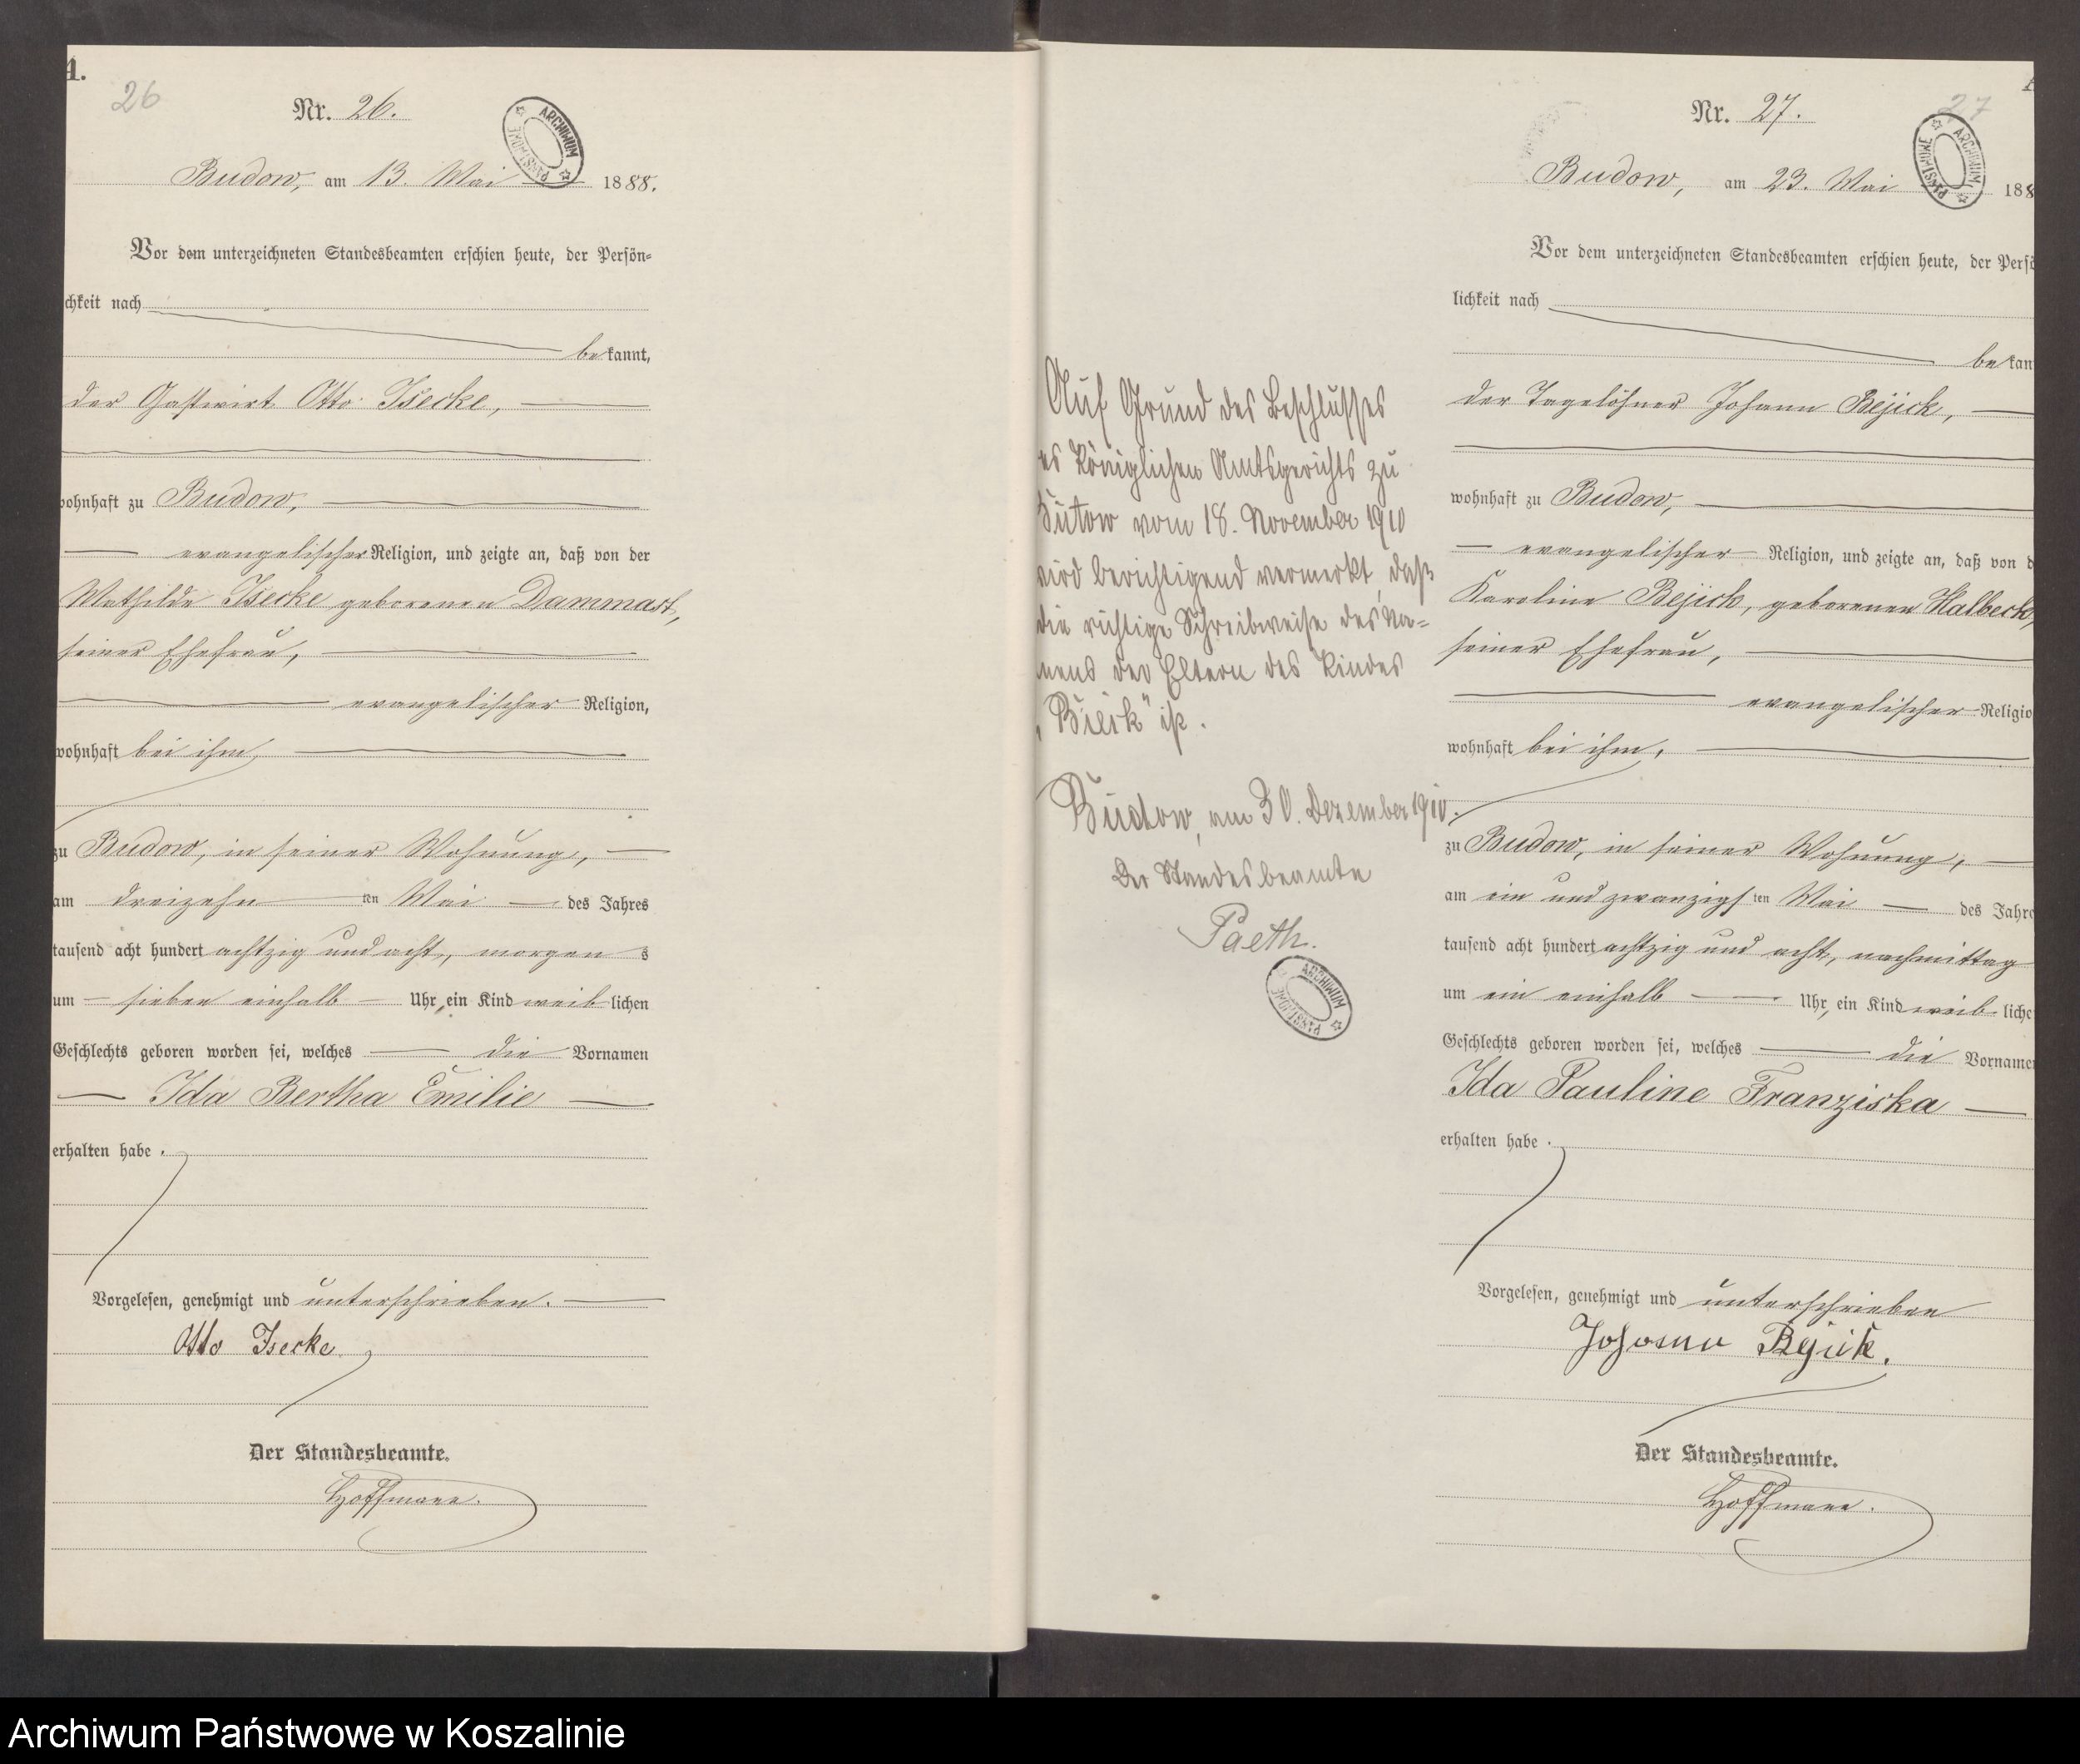 A.
26
Nr. 26.
ARCHIWUM PAŃSTWOWE
Budow, am 13. Mai 1888.
Vor dem unterzeichneten Standesbeamten erschien heute, der Persön=
chkeit nach
bekannt,
der Gastwirt Otto Isecke,
wohnhaft zu Budow,
evangelischer Religion, und zeigte an, daß von der
Mathilde Isecke geborenen Dammast,
seiner Ehefrau,
evangelischer Religion,
wohnhaft bei ihm,
zu Budow, in seiner Wohnung,
am dreizehn ten Mai des Jahres
tausend acht hundert achtzig und acht, morgens
um sieben einhalb Uhr, ein Kind weiblichen
Geschlechts geboren worden sei, welches die Vornamen
Ida Bertha Emilie
erhalten habe.
Vorgelesen, genehmigt und unterschrieben.
Otto Isecke
Der Standesbeamte.
Hoffmann.
Auf Grund des Beschlusses
es Königlichen Amtsgerichts zu
Bütow vom 18. November 1910
wird berichtigend vermerkt, daß
die richtige Schreibweise des Na=
mens der Eltern des Kindes
ist.
Budow, am 30. Dezember 1910.
Der Standesbeamte
Paeth.
ARCHIWUM PAŃSTWOWE
27
Nr. 27.
ARCHIWUM PAŃSTWOWE
Budow, am 23. Mai 188
Vor dem unterzeichneten Standesbeamten erschien heute, der Persö
lichkeit nach
bekan
der Tagelöhner Johann Bejick,
wohnhaft zu Budow,
evangelischer Religion, und zeigte an, daß von d
Karoline Bejick, geborenen Halbeck,
seiner Ehefrau,
evangelischer Religio
wohnhaft bei ihm,
zu Budow, in seiner Wohnung,
am ein und zwanzigsten Mai des Jahre
tausend acht hundert achtzig und acht, nachmittag
um ein einhalb Uhr, ein Kind weibliche
Geschlechts geboren worden sei, welches die Vorname
Ida Pauline Franziska
erhalten habe.
Vorgelesen, genehmigt und unterschrieben
Johann Bejick.
Der Standesbeamte.
Hoffmann.
Archiwum Państwowe w Koszalinie